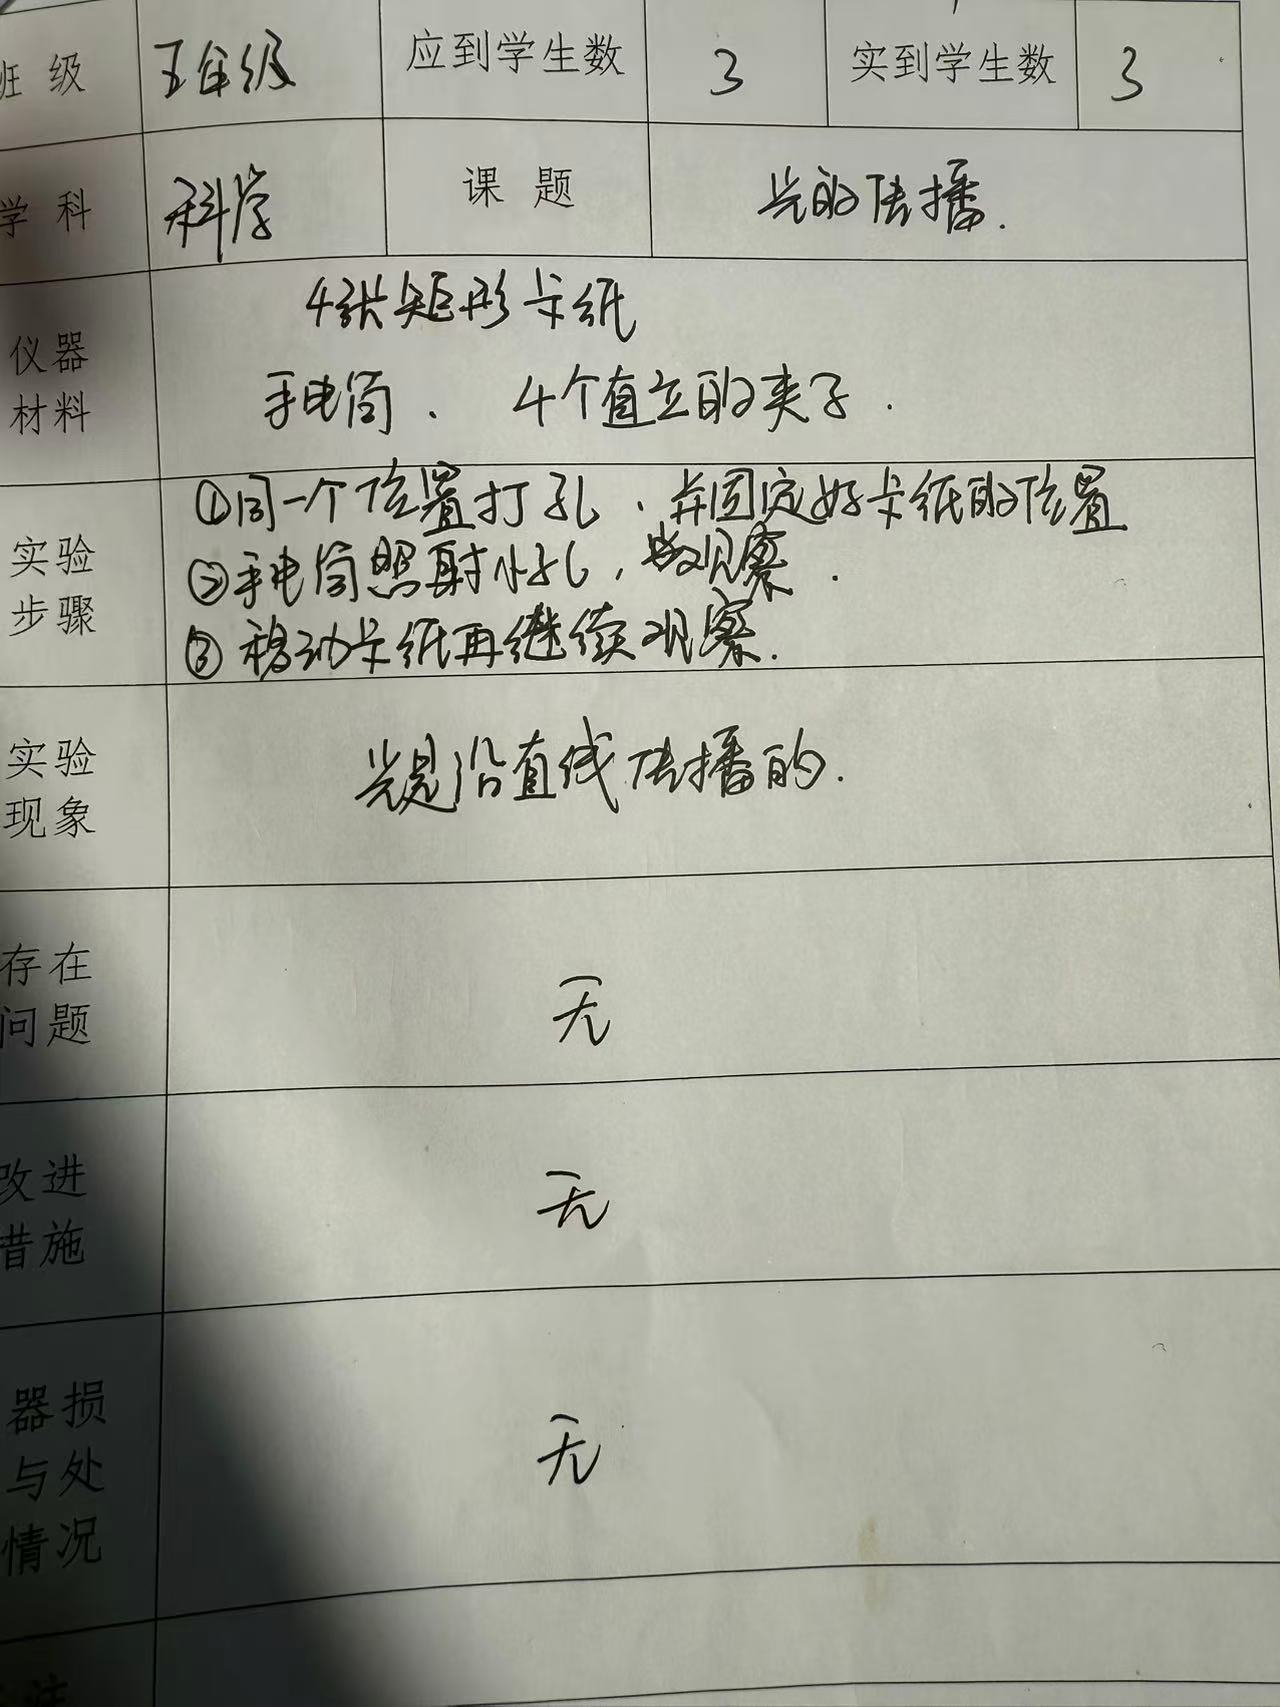 班 级 五年级 应到学生数 3 实到学生数 3
学 科 科学 课 题 光的传播.
仪器
材料
4张矩形卡纸
手电筒 、 4个直立的夹子 .
实验
步骤
①同一个位置打孔、并固定好卡纸的位置
②手电筒照射小孔,观察.
③移动卡纸再继续观察.
实验
现象
光是沿直线传播的.
存在
问题
无
改进
措施
无
器损
与处
情况
无
注